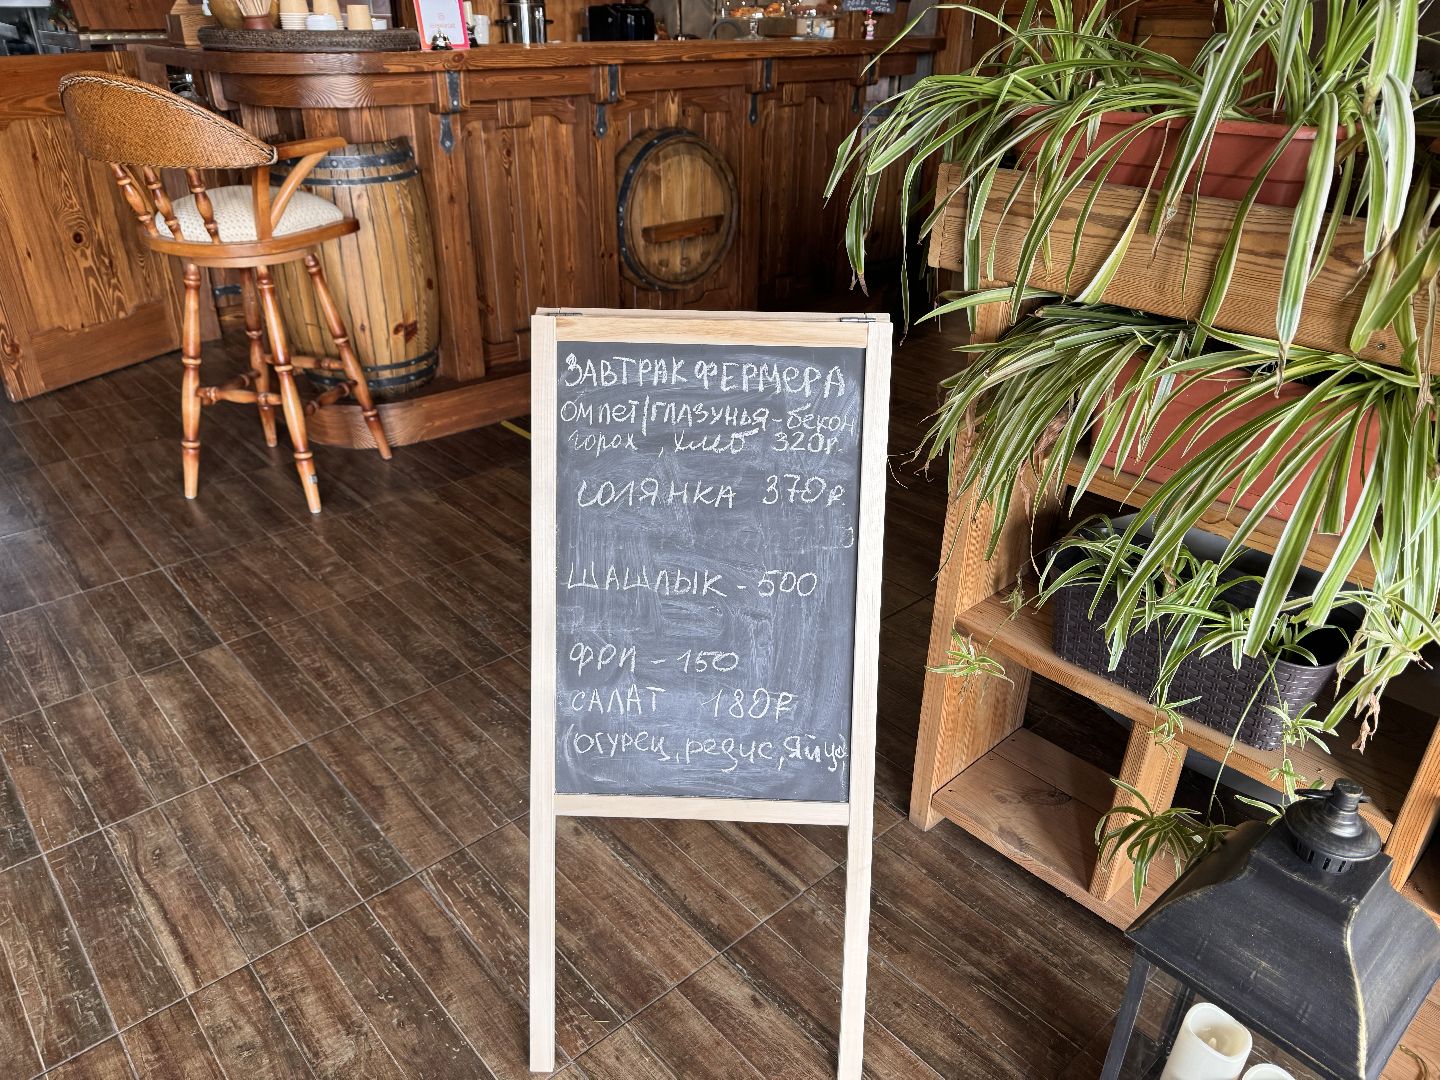 ЗАВТРАК ФЕРМЕРА
ОМЛЕТ/ГЛАЗУНЬЯ-бекон
горох, хлеб 320г.
СОЛЯНКА 370₽
ШАШЛЫК - 500
ФРИ - 150
САЛАТ 180₽
(огурец, редис, яйцо)